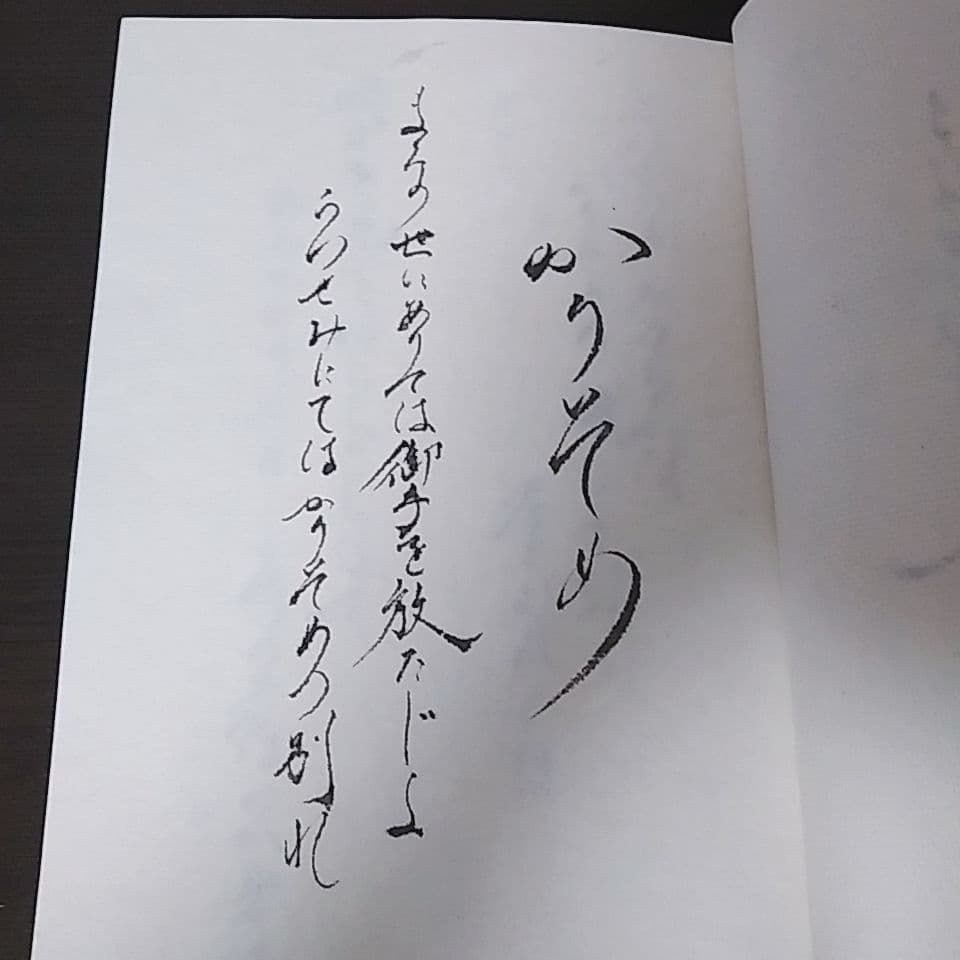 かりそめ
世にありては御手を放たじよ
うつせみにてはかりそめの別れ